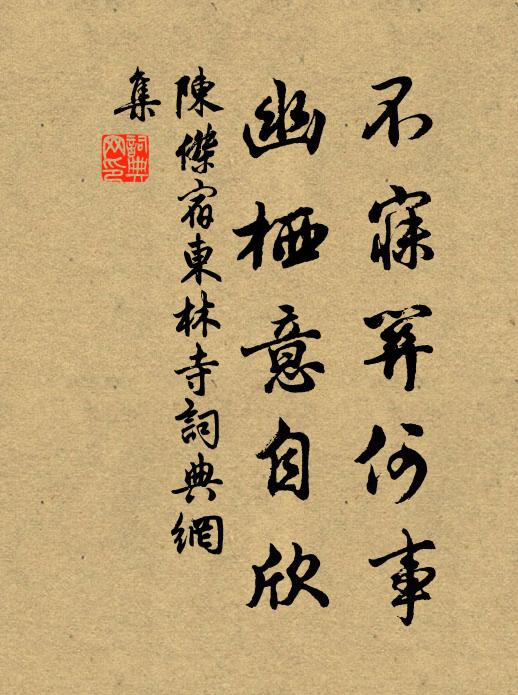 不寐關何事
幽栖意自欣
陳傑宿東林寺詞典網
集
詞典
网印